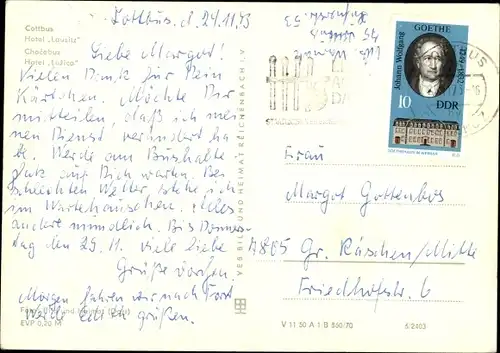 Cottbus
Hotel „Lausitz"
Chośebuz
Hotel „Łužica"
Cottbus, d. 24.11.73
Liebe Margot!
Vielen Dank für Dein
Kärtchen. Möchte Dir
mitteilen, daß ich mei-
nen Dienst verändert ha-
be. Werde am Bushalte-
platz auf Dich warten. Bei
schlechten Wetter, stehe ich
im Wartehäuschen. Alles
andere mündlich. Bis Donners-
tag den 29.11. viele liebe
Grüße
Morgen fahren wir nach Forst
Werde grüßen.
Foto: Bild und Heimat
EVP 0,20 M
VEB BILD UND HEIMAT REICHENBACH I. V.
Johann Wolfgang
GOETHE
1749-1832
10
DDR
Frau
Margot Gottenbos
7805 Gr. Räschen/Mitte
Friedhofstr. 6
V 11 50 A 1 B 860/70
6/2403